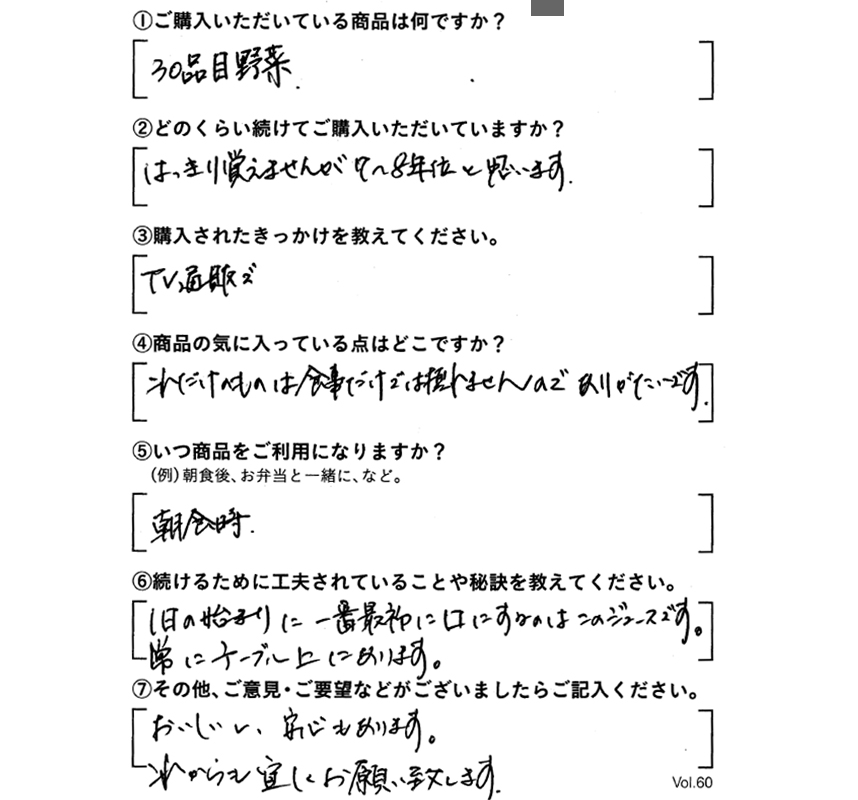 ①ご購入いただいている商品は何ですか？
30品目野菜.
②どのくらい続けてご購入いただいていますか？
はっきり覚えませんが 7〜8年位と思います.
③購入されたきっかけを教えてください。
TV通販で
④商品の気に入っている点はどこですか？
これだけのものは食事だけでは摂れませんので ありがたいです.
⑤いつ商品をご利用になりますか？
(例)朝食後、お弁当と一緒に、など。
朝食時.
⑥続けるために工夫されていることや秘訣を教えてください。
1日の始まりに 一番最初に口にするのは このジュースです。
常にテーブル上にあります。
⑦その他、ご意見・ご要望などがございましたらご記入ください。
おいしい、安心もあります。
これからも宜しくお願い致します.
Vol.60